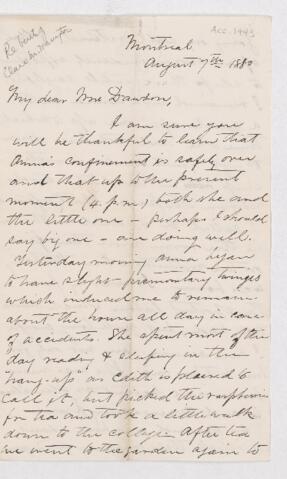 Re birth of
Clare M. Harrington
Acc. 1443
Montreal
August 7th 1880
My dear Mrs Dawson,
I am sure you
will be thankful to learn that
Anna's confinement is safely over
and that up to the present
moment (4 p.m.) both she and
the little one - perhaps I should
say big one - are doing well.
Yesterday morning Anna began
to have slight premonitary twinges
which induced me to remain
about the house all day in case
of accidents. She spent most of the
day reading & sleeping in the
"hang-up" as Edith is pleased to
call it, but picked the raspberries
for tea and took a little walk
down to the college. After tea
we went to the garden again to